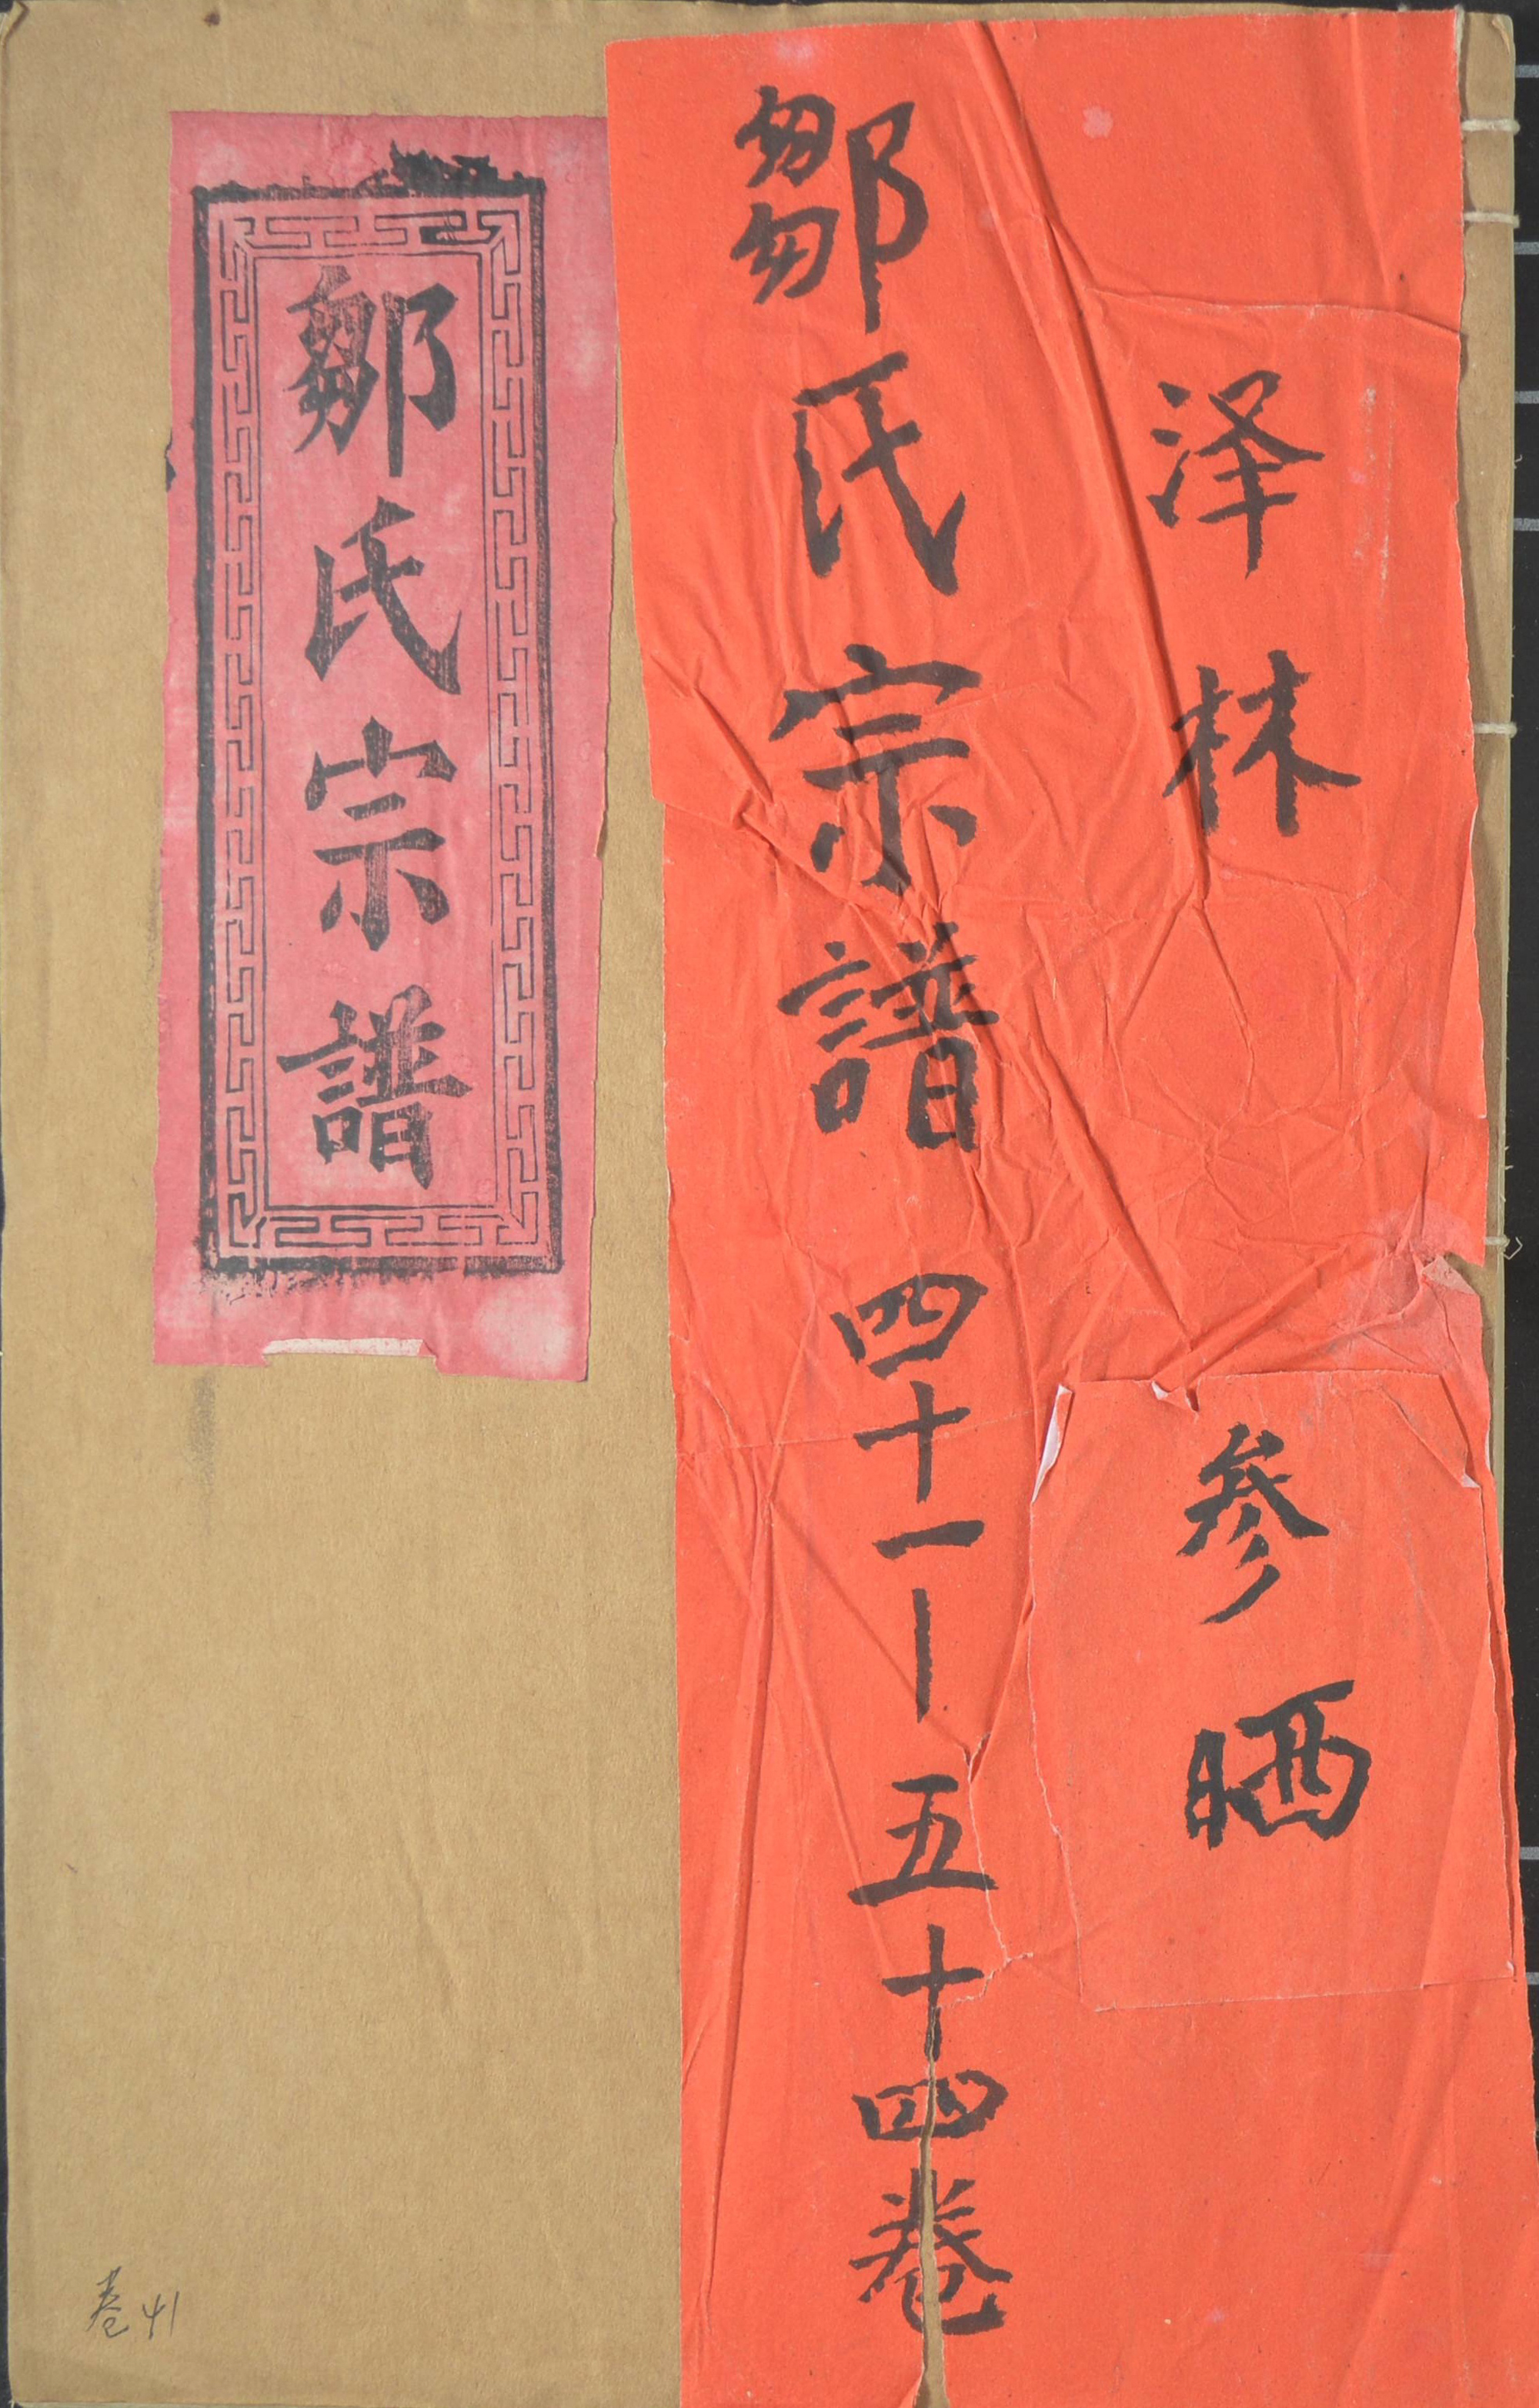 泽林 参晒
鄒氏宗譜 四十一—五十四卷
鄒氏宗譜
卷41